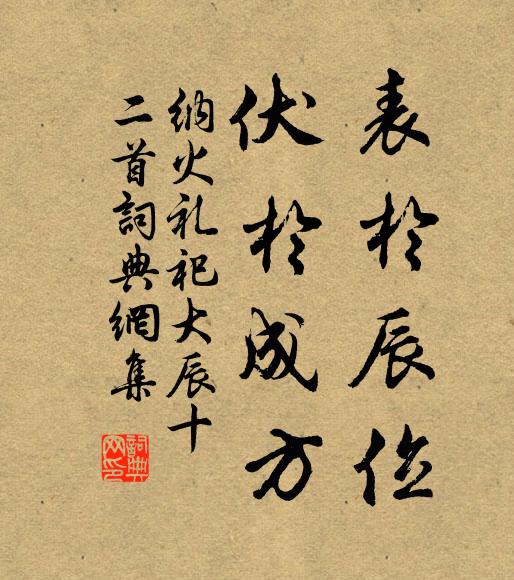 表於辰位
伏於成方
納火礼祀大辰十
二首詞典網集
詞典网印